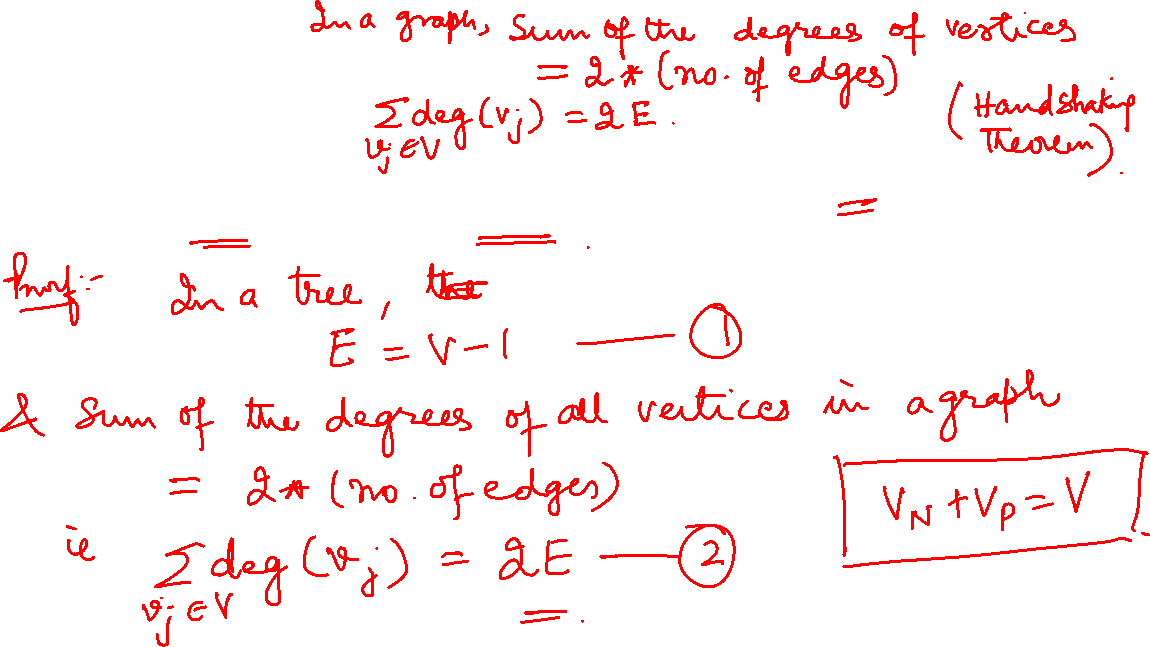 In a graph, Sum of the degrees of vertices
= 2 * (no. of edges)
∑ deg(vj) = 2E.
vj ∈ V
(Handshaking
Theorem).
Proof:- In a tree,
E = V-1 —— ①
& Sum of the degrees of all vertices in a graph
= 2 * (no. of edges)
VN + VP = V
ie ∑ deg(vj) = 2E —— ②
vj ∈ V